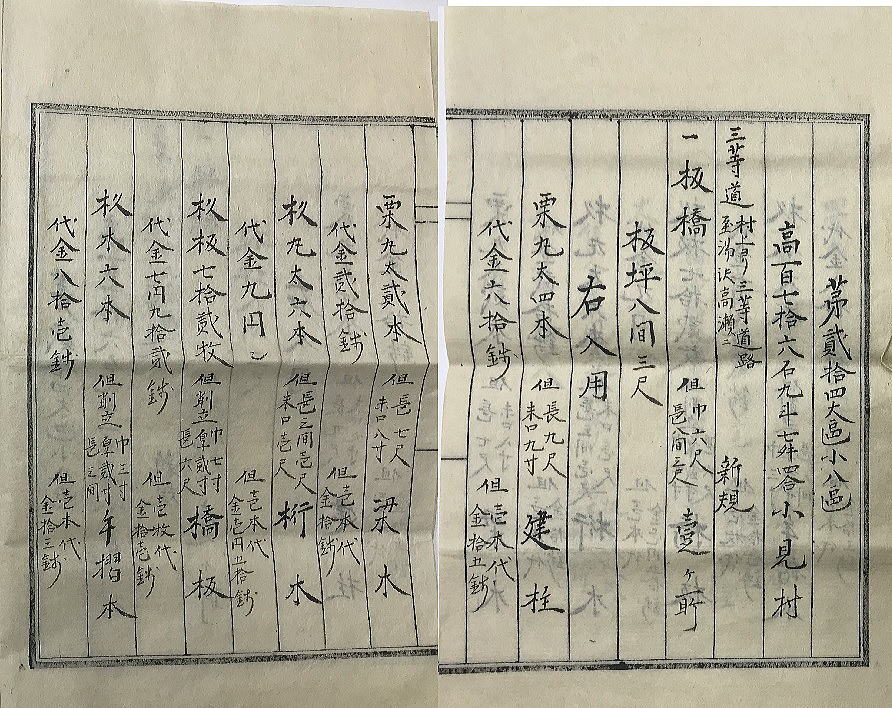 第貳拾四大區小八區
高百七拾六石九斗七舛四合 小見村
三等道 村ゟ三等道路
至湯沢高瀬ニ 新規
一 板橋 但 巾六尺
長八間三尺 壹ヶ所
板坪八間三尺
右入用
栗丸太四本 但 長九尺
末口九寸 建柱
代金六拾銭 但 壱本代
金拾五銭
栗丸太貳本 但 長七尺
末口八寸 梁木
代金貳拾銭 但 壱本代
金拾銭
杦丸太六本 但 長之間壱尺
末口壱尺 桁木
代金九円 但 壱本代
金壱円五拾銭
杦板七拾貳枚 但 削立 巾七寸
厚貳寸
長六尺 橋板
代金七円九拾貳銭 但 壱枚代
金拾壱銭
杦木六本 但 削立 巾三寸
厚貳寸
長之間 手摺木
代金八拾壱銭 但 壱本代
金拾三銭